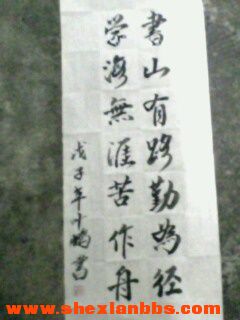 書山有路勤為徑
学海無涯苦作舟
戊子年
書
www.shexlanbbs.com